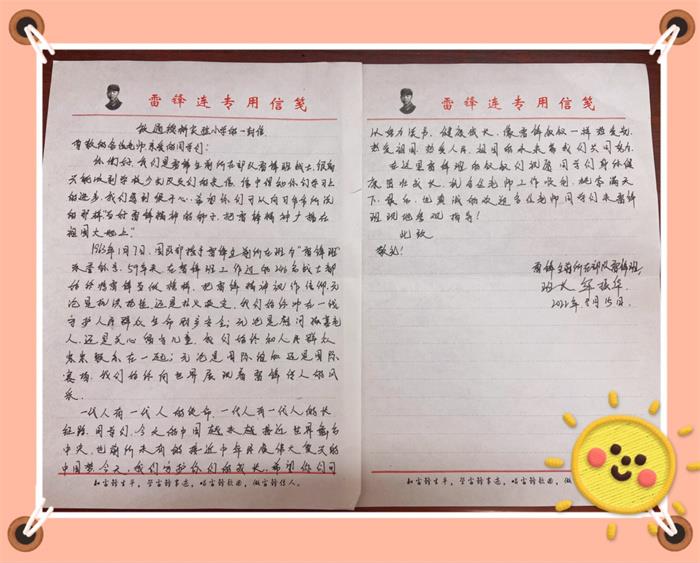 雷锋连专用信笺
致通榆榆实验小学的一封信
尊敬的各位老师亲爱的同学们:
你们好,我们是雷锋生前所在部队雷锋班战士,很高
兴能收到学校少先队员们的来信,信中得知你们学习上
的进步,我们感到很开心,希望你们可以向习爷爷所说
的那样"当好雷锋精神的种子,把雷锋精神广播在
祖国大地上"
1963年1月7日,国防部授予雷锋生前所在班为"雷锋班"
荣誉称号,59年来在雷锋班工作过的206名战士都
始终将雷锋当做榜样,把雷锋精神视作信仰,无
论是抗洪抢险还是救火救灾,我们始终冲在一线
守护人民群众生命财产安全;无论是慰问孤寡老
人,还是关心留守儿童,我们始终和人民群众
紧紧联系在一起;无论是国际维和还是国际
赛场,我们始终向世界展现着雷锋传人的风
采。
一代人有一代人的使命,一代人有一代人的长
征路,同学们,今天的中国越来越接近世界舞台
中央,也前所未有的接近中华民族伟大复兴的
中国梦,今天,我们守护你们的成长,希望你们可
知雷锋生平,学雷锋事迹,唱雷锋歌曲,做雷锋传人。
雷锋连专用信笺
以努力读书,健康成长,像雷锋叔叔一样热爱党,
热爱祖国,热爱人民,祖国的未来需我们共同努力。
在这里雷锋班的叔叔们祝愿同学们身体健
康茁壮成长,祝各位老师工作顺利,桃李满天
下。最后,也真诚的欢迎各位老师同学们来雷锋
班现地参观指导!
此致
敬礼!
雷锋生前所在部队雷锋班
班长 牟振华
2022年 月15日.
知雷锋生平,学雷锋事迹,唱雷锋歌曲,做雷锋传人。